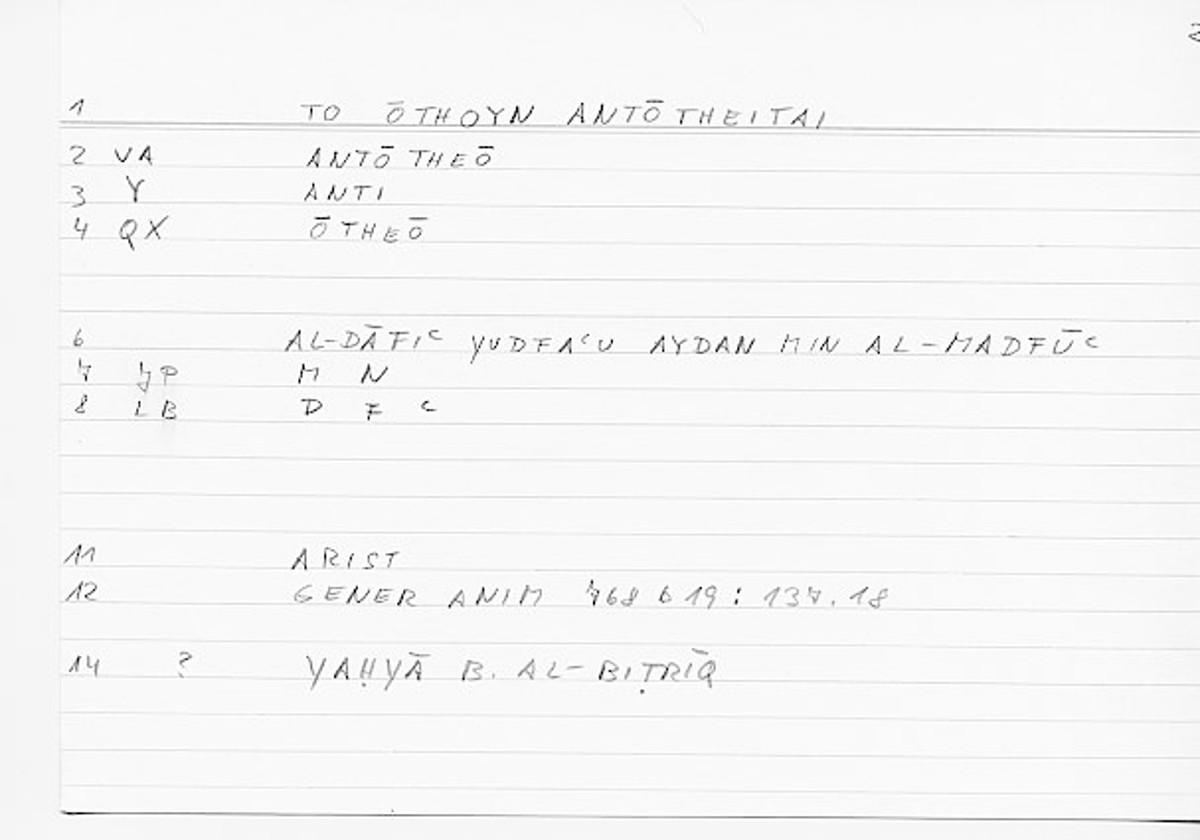 1 TO ŌTHOYN ANTŌTHEITAI
2 VA ANTŌTHEŌ
3 Y ANTI
4 QX ŌTHEŌ
6 AL-DĀFIᶜ YUDFAᶜU AYDAN MIN AL-MADFŪᶜ
7 M N
8 LB D F ᶜ
11 ARIST
12 GENER ANIM 768 b 19 : 137.18
14 ? YAḤYĀ B. AL-BIṬRĪQ